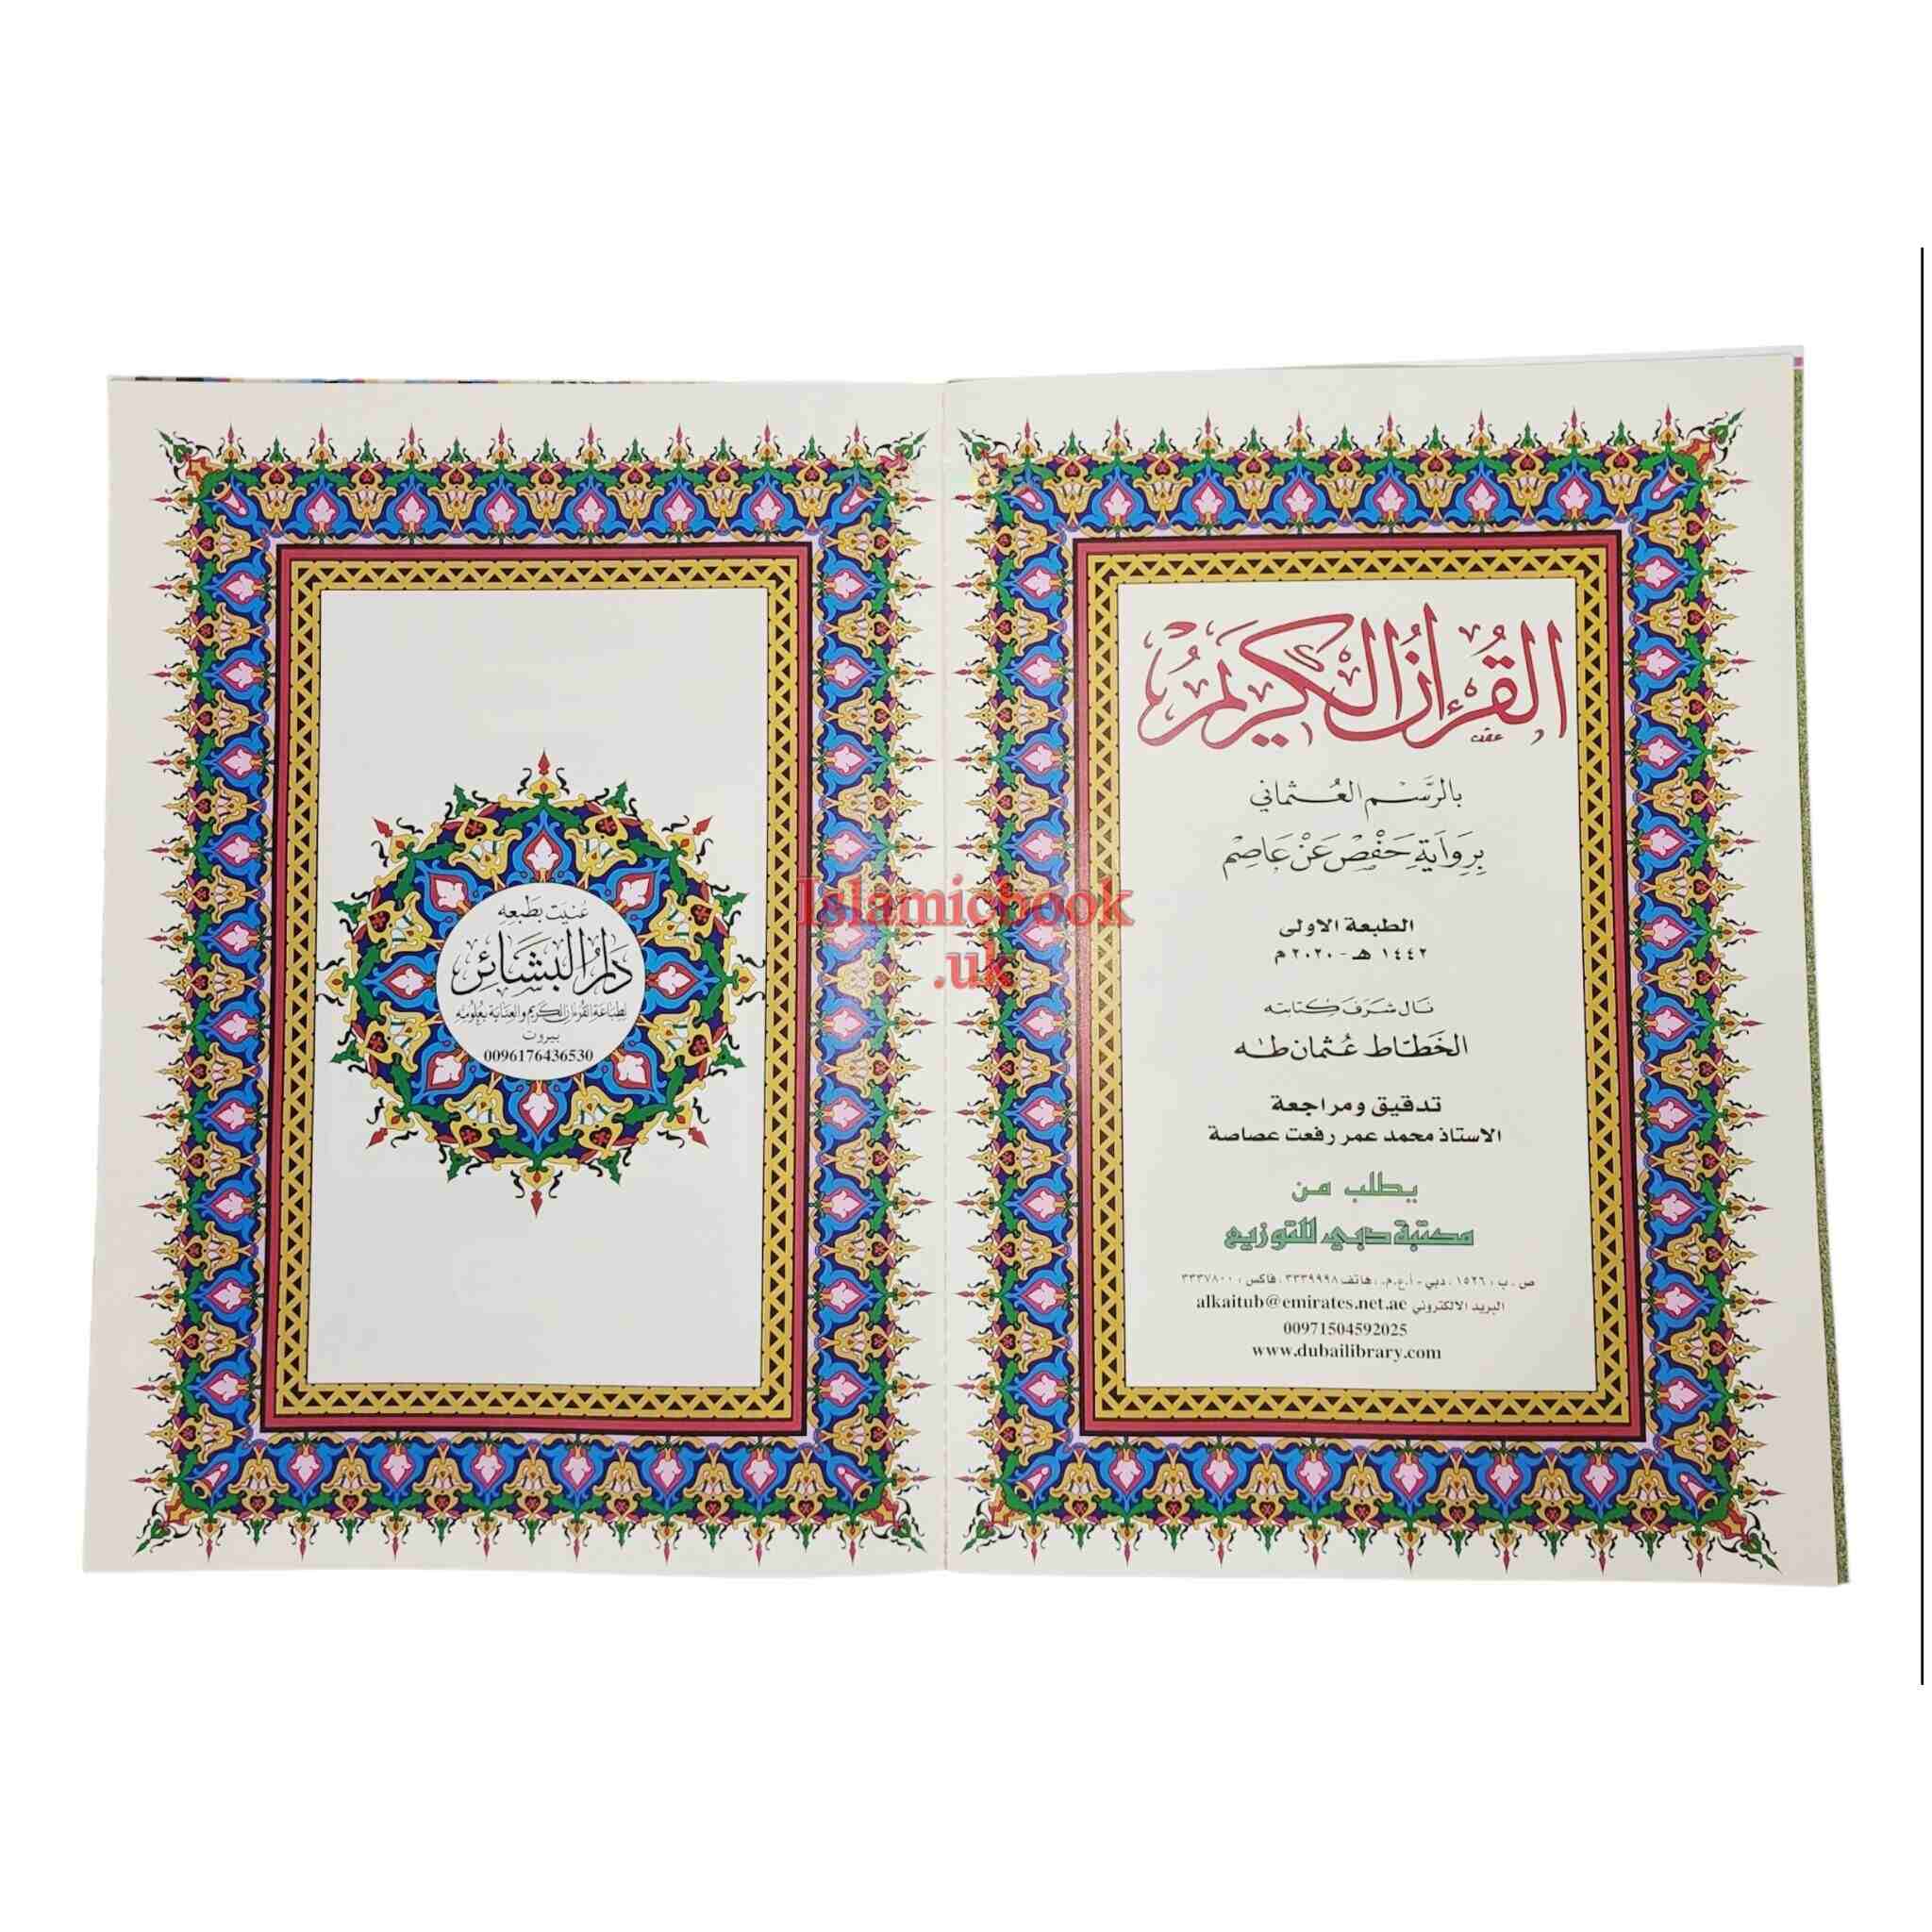 القرءان الكريم
بالرَّسْم العُثماني
بِرِوَايَةِ حَفْصٍ عَنْ عَاصِمٍ
الطبعة الاولى
١٤٤٢ هـ - ٢٠٢٠ م
نال شرف كتابته
الخطاط عُثمان طه
تدقيق ومراجعة
الاستاذ محمد عمر رفعت عصاصة
يطلب من
مكتبة دبي للتوزيع
ص . ب : ١٥٢٦ ، دبي - أ.ع.م. ، هاتف ٣٣٣٩٩٩٨ ، فاكس : ٣٣٣٧٨٠٠
البريد الالكتروني alkaitub@emirates.net.ae
00971504592025
www.dubailibrary.com
عُنيَت بطَبعِهِ
دَارُ البَشَائِر
لطباعة القرءان الكريم والعناية بعلومه
بيروت
0096176436530
Islamicbook
.uk